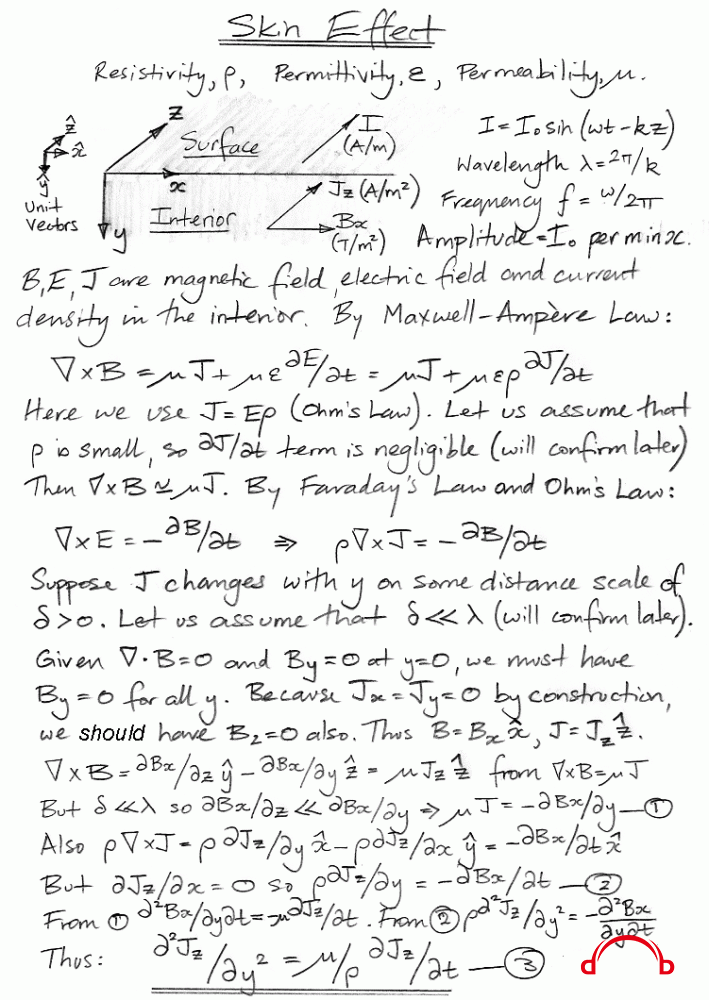 Skin Effect
Resistivity, ρ, Permittivity, ε, Permeability, μ.
ẑ
x̂
ŷ
Unit
Vectors
z
Surface
I
(A/m)
x
Interior
Jz (A/m²)
Bx
(T/m²)
y
I = I₀ sin (ωt - kz)
Wavelength λ = 2π/k
Frequency f = ω/2π
Amplitude = I₀ per m in x.
B, E, J are magnetic field, electric field and current
density in the interior. By Maxwell-Ampère Law:
∇×B = μJ + με ∂E/∂t = μJ + μερ ∂J/∂t
Here we use J = Eρ (Ohm's Law). Let us assume that
ρ is small, so ∂J/∂t term is negligible (will confirm later)
Then ∇×B ≃ μJ. By Faraday's Law and Ohm's Law:
∇×E = -∂B/∂t ⇒ ρ∇×J = -∂B/∂t
Suppose J changes with y on some distance scale of
δ>0. Let us assume that δ≪λ (will confirm later).
Given ∇·B=0 and By=0 at y=0, we must have
By=0 for all y. Because Jx=Jy=0 by construction,
we should have Bz=0 also. Thus B=Bx x̂, J=Jz ẑ.
∇×B = ∂Bx/∂z ŷ - ∂Bx/∂y ẑ = μJz ẑ from ∇×B=μJ
But δ≪λ so ∂Bx/∂z ≪ ∂Bx/∂y ⇒ μJ = -∂Bx/∂y — ①
Also ρ∇×J = ρ ∂Jz/∂y x̂ - ρ ∂Jz/∂x ŷ = -∂Bx/∂t x̂
But ∂Jz/∂x = 0 so ρ ∂Jz/∂y = -∂Bx/∂t — ②
From ① ∂²Bx/∂y∂t = -μ ∂Jz/∂t. From ② ρ ∂²Jz/∂y² = -∂²Bx/∂y∂t
Thus: ∂²Jz/∂y² = μ/ρ ∂Jz/∂t — ③